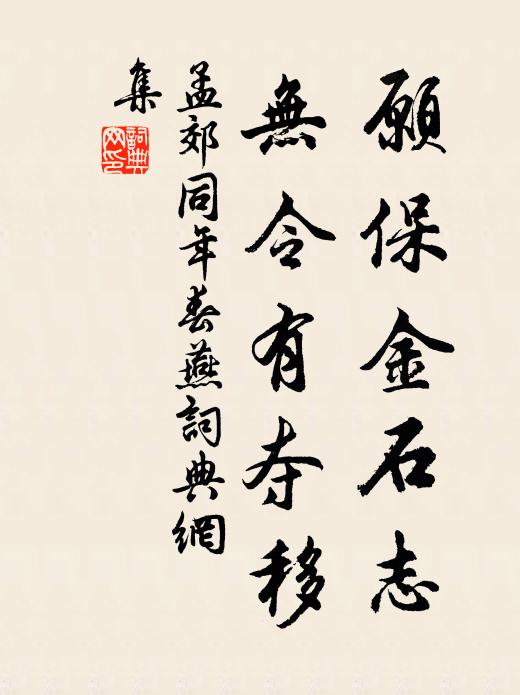 願保金石志
無令有夺移
孟郊同年春燕詞典網
集
詞典網印